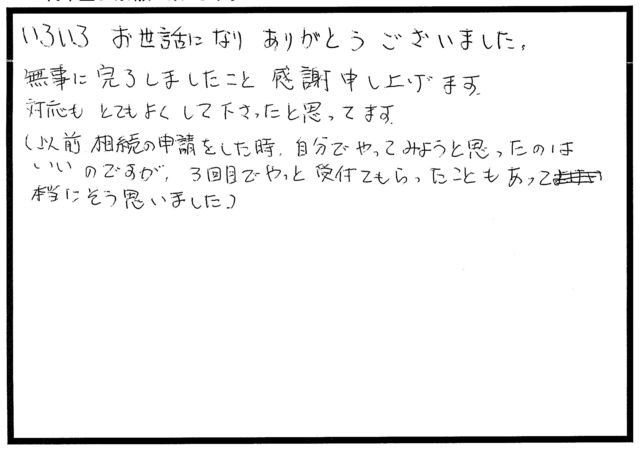 いろいろ お世話になり ありがとう ございました。
無事に 完了しましたこと 感謝申し上げます。
対応も とてもよくして下さったと思ってます。
(以前 相続の申請をした時、自分でやってみようと思ったのは
いいのですが、3回目でやっと受付てもらったこともあって
本当にそう思いました。)